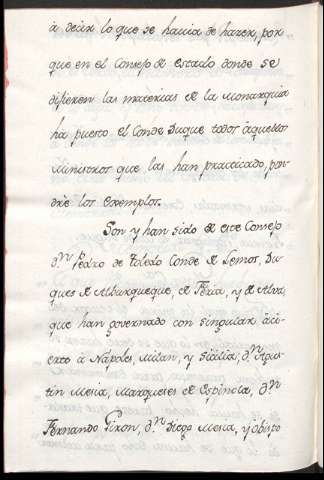 à decir lo que se hauia de hazer, por
que en el Consejo de estado donde se
difieren las materias de la monarquia
ha puesto el Conde Duque todos aquellos
ministros que las han practicado, pon
dre los exemplos.
Son y han sido de este Consejo
d.n Pedro de Toledo Conde de Lemos, Du
ques de Alburquerque, de Feria, y de Alva,
que han governado con singular aci
erto a Napoles, Milan, y Sicilia, d.n Agus
tin Mesia, Marqueses de Espinola, d.n
Fernando Giron, d.n Diego Mesia, y